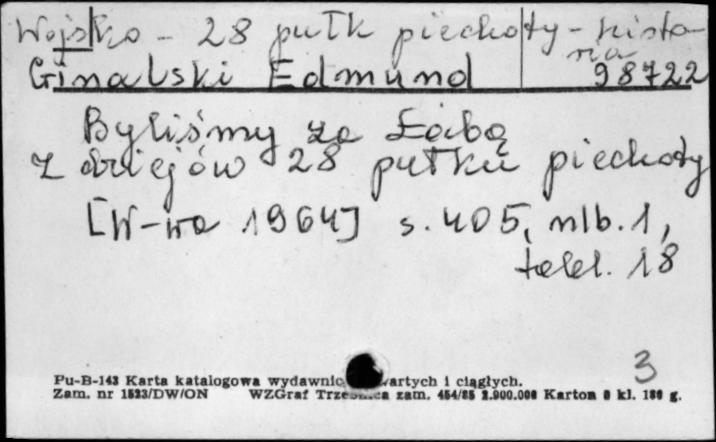 Wojsko - 28 pułk piechoty - histo-
ria
Ginalski Edmund 98722
Byliśmy za Łabą
z dziejów 28 pułku piechoty
[W-wa 1964] s. 405, nlb. 1,
tabl. 18
3
Pu-B-143 Karta katalogowa wydawnic artych i ciągłych.
Zam. nr 1523/DW/ON WZGraf Trzebnica zam. 454/85 2.900.000 Karton kl. g.